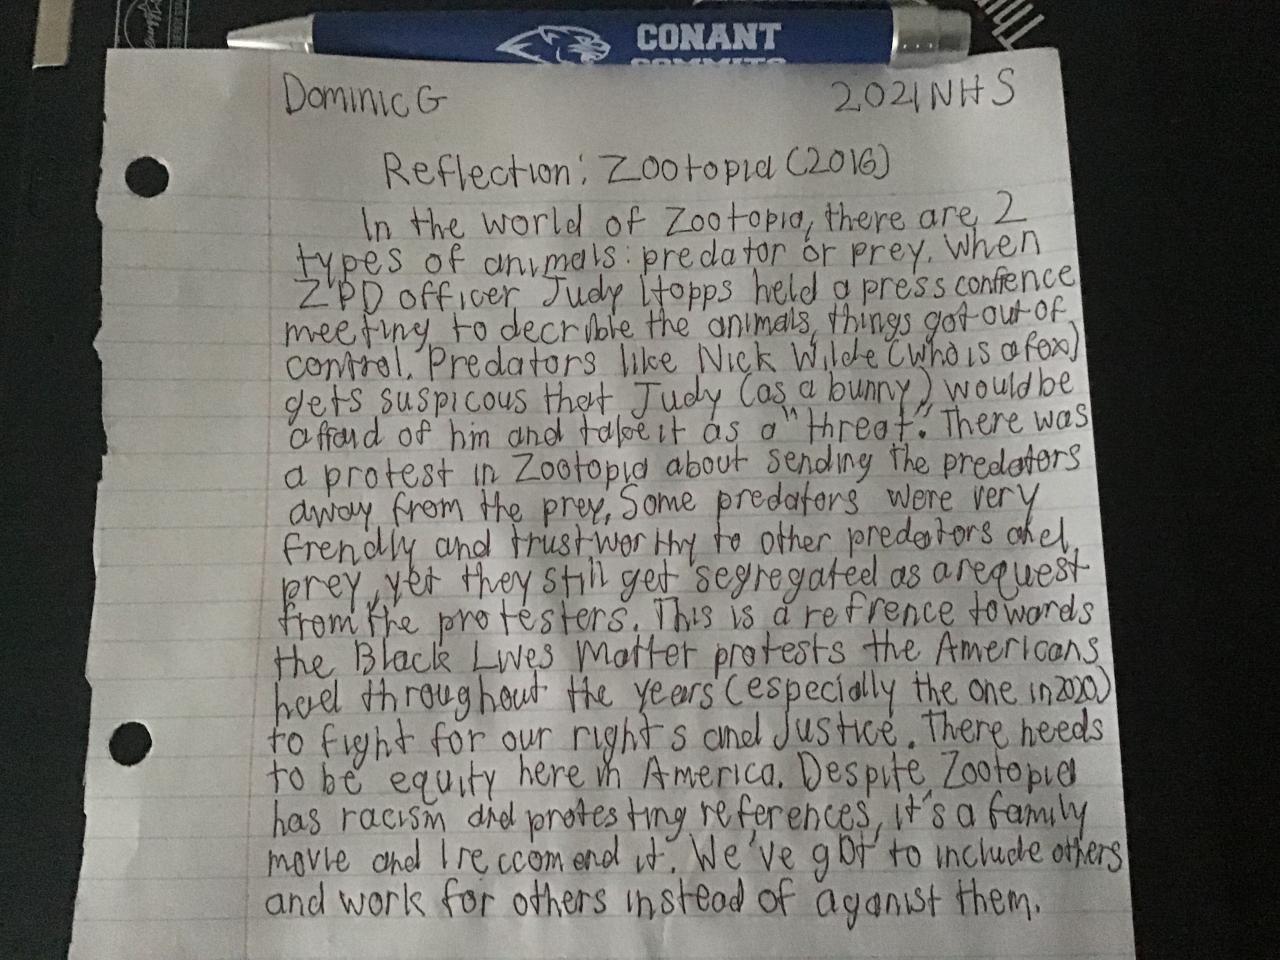 CONANT
COMMITS
Dominic G
2021 NHS
Reflection: Zootopia (2016)
In the world of Zootopia, there are 2
types of animals: predator or prey. When
ZPD officer Judy Hopps held a press confrence
meeting to decrible the animals, things got out of
control. Predators like Nick Wilde (who is a fox)
gets suspicous that Judy (as a bunny) would be
affraid of him and take it as a "threat". There was
a protest in Zootopia about sending the predators
away from the prey. Some predators were very
frendly and trustworthy to other predators and
prey, yet they still get segregated as a request
from the protesters. This is a refrence towards
the Black Lives Matter protests the Americans
held throughout the years (especially the one in 2020)
to fight for our rights and justice. There needs
to be equity here in America. Despite Zootopia
has racism and protesting references, it's a family
movie and I reccomend it. We've got to include others
and work for others instead of aganist them.